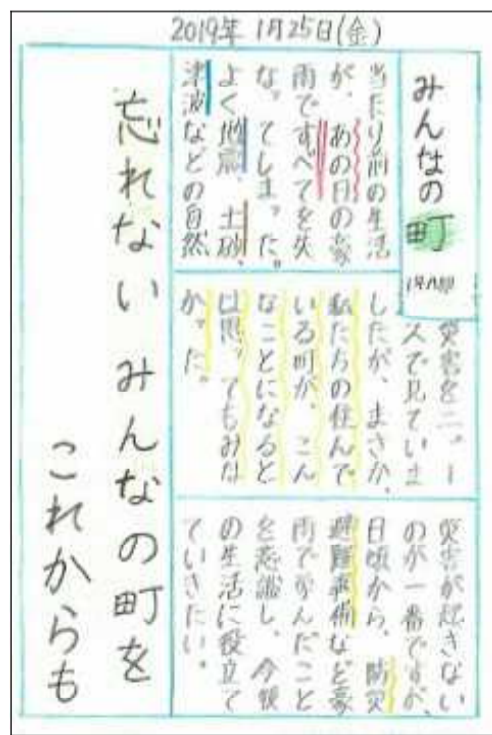 2019年 1月25日(金)
みんなの町
当たり前の生活
が、あの日の豪
雨ですべてを失
な。てしま。た。
よく地震、土砂、
津波などの自然
災害をニュー
スで見ていま
したが、まさか、
私たちの住んで
いる町が、こん
なことになると
は思ってもみな
かった。
災害が起きない
のが一番ですが、
日頃から、防災
避難準備など豪
雨で学んだこと
を意識し、今後
の生活に役立て
ていきたい。
これからも
みんなの町を
忘れない